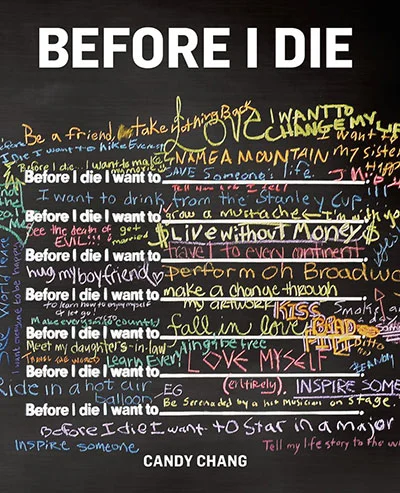 BEFORE I DIE
Be a friend, take nothing Back
Love
I WANT TO
CHANGE MY LIFE
I die I want to hike Everest
I want
Before I die... I want to make
NAME A MOUNTAIN
my sister
Happy
Before I die I want to SAVE Someone's life
Tell how I feel
I want to drink from the Stanley Cup!
Before I die I want to grow a mustache
See the death of
EVIL!!!
get
married
$Live without Money$
Before I die I want to travel to every continent
hug my boyfriend
perform on Broadwa
Before I die I want to make a change through
my artwork
to learn how to enjoy myself
& let go!
KISS
Smoke a
Make
every
country
Before I die I want to fall in love
DEAD
FISH
Meet my daughter's-in-law
Things we world
Learn Everything
be free
Ditto
Before I die I want to LOVE MYSELF
Ride in a hot air
balloon
EG
(entirely).
INSPIRE SOME
Before I die I want to Be Serenaded by a hot Musician on stage.
Before I die I want to Star in a major
INSPIRE someone
Tell my life story to the w
See World Peace
I want everyone to be happy
CANDY CHANG